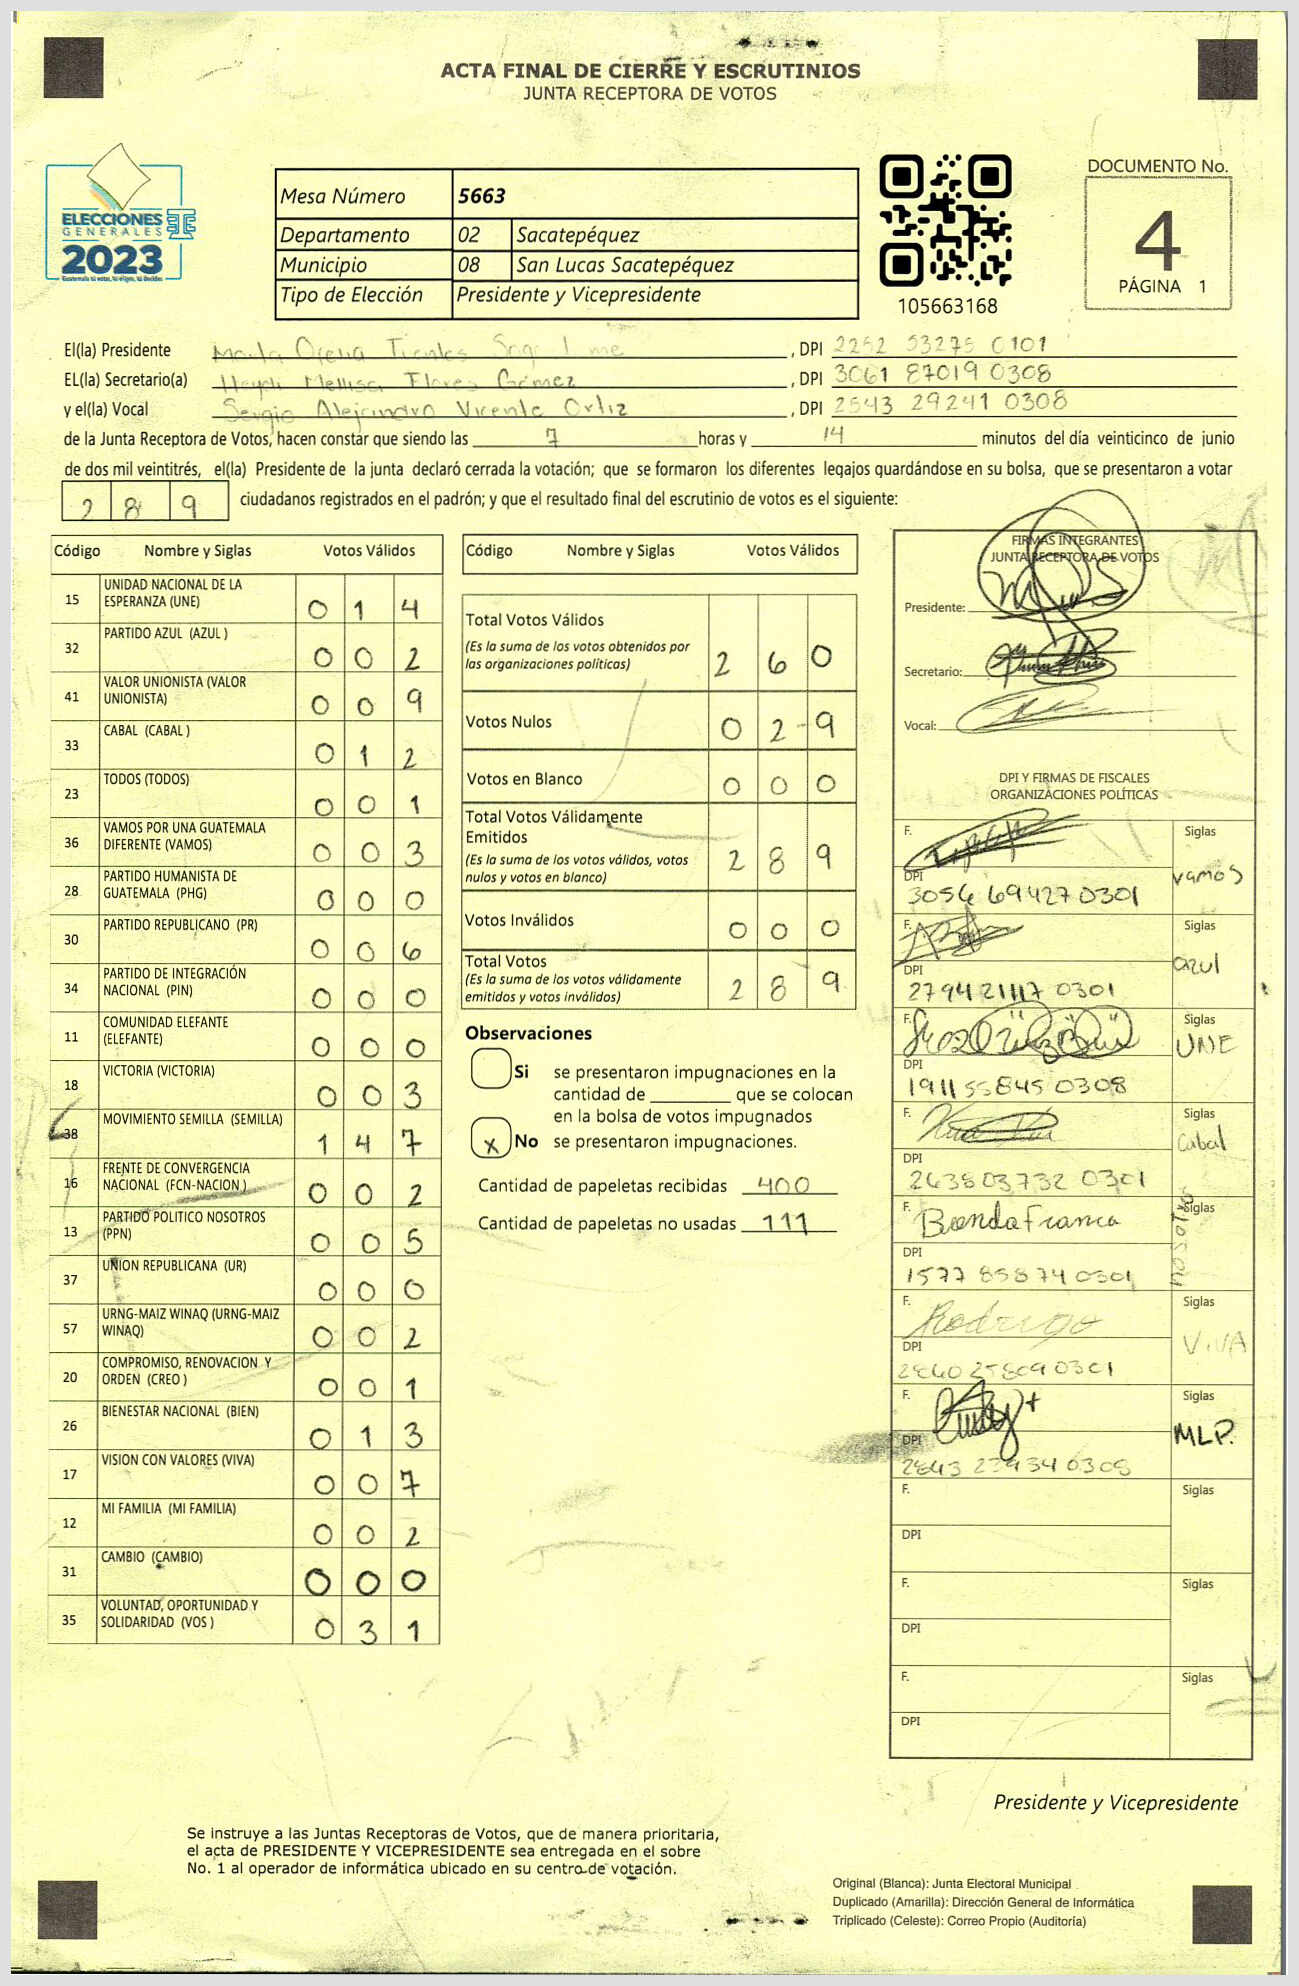 ACTA FINAL DE CIERRE Y ESCRUTINIOS
JUNTA RECEPTORA DE VOTOS
ELECCIONES
GENERALES
2023
Mesa Número 5663
Departamento 02 Sacatepéquez
Municipio 08 San Lucas Sacatepéquez
Tipo de Elección Presidente y Vicepresidente
105663168
DOCUMENTO No.
4
PÁGINA 1
El(la) Presidente , DPI 2252 53275 0101
EL(la) Secretario(a) Heydi Mellisa Flores Gómez , DPI 3061 87019 0308
y el(la) Vocal Sergio Alejandro Vicente Ortiz , DPI 2543 29241 0308
de la Junta Receptora de Votos, hacen constar que siendo las 7 horas y 14 minutos del día veinticinco de junio
de dos mil veintitrés, el(la) Presidente de la junta declaró cerrada la votación; que se formaron los diferentes legajos guardándose en su bolsa, que se presentaron a votar
289 ciudadanos registrados en el padrón; y que el resultado final del escrutinio de votos es el siguiente:
Código Nombre y Siglas Votos Válidos
15 UNIDAD NACIONAL DE LA
ESPERANZA (UNE) 0 1 4
32 PARTIDO AZUL (AZUL ) 0 0 2
41 VALOR UNIONISTA (VALOR
UNIONISTA) 0 0 9
33 CABAL (CABAL ) 0 1 2
23 TODOS (TODOS) 0 0 1
36 VAMOS POR UNA GUATEMALA
DIFERENTE (VAMOS) 0 0 3
28 PARTIDO HUMANISTA DE
GUATEMALA (PHG) 0 0 0
30 PARTIDO REPUBLICANO (PR) 0 0 6
34 PARTIDO DE INTEGRACIÓN
NACIONAL (PIN) 0 0 0
11 COMUNIDAD ELEFANTE
(ELEFANTE) 0 0 0
18 VICTORIA (VICTORIA) 0 0 3
38 MOVIMIENTO SEMILLA (SEMILLA) 1 4 7
16 FRENTE DE CONVERGENCIA
NACIONAL (FCN-NACION ) 0 0 2
13 PARTIDO POLITICO NOSOTROS
(PPN) 0 0 5
37 UNION REPUBLICANA (UR) 0 0 0
57 URNG-MAIZ WINAQ (URNG-MAIZ
WINAQ) 0 0 2
20 COMPROMISO, RENOVACION Y
ORDEN (CREO ) 0 0 1
26 BIENESTAR NACIONAL (BIEN) 0 1 3
17 VISION CON VALORES (VIVA) 0 0 7
12 MI FAMILIA (MI FAMILIA) 0 0 2
31 CAMBIO (CAMBIO) 0 0 0
35 VOLUNTAD, OPORTUNIDAD Y
SOLIDARIDAD (VOS ) 0 3 1
Código Nombre y Siglas Votos Válidos
Total Votos Válidos
(Es la suma de los votos obtenidos por
las organizaciones políticas) 2 6 0
Votos Nulos 0 2 9
Votos en Blanco 0 0 0
Total Votos Válidamente
Emitidos
(Es la suma de los votos válidos, votos
nulos y votos en blanco) 2 8 9
Votos Inválidos 0 0 0
Total Votos
(Es la suma de los votos válidamente
emitidos y votos inválidos) 2 8 9
Observaciones
Si se presentaron impugnaciones en la
cantidad de ________ que se colocan
en la bolsa de votos impugnados
x No se presentaron impugnaciones.
Cantidad de papeletas recibidas 400
Cantidad de papeletas no usadas 111
FIRMAS INTEGRANTES
JUNTA RECEPTORA DE VOTOS
Presidente:
Secretario:
Vocal:
DPI Y FIRMAS DE FISCALES
ORGANIZACIONES POLÍTICAS
F. Siglas
vamos
DPI
3056 69427 0301
F. Siglas
azul
DPI
2794 21117 0301
F. Siglas
UNE
DPI
1911 55845 0308
F. Siglas
Cabal
DPI
2638 03732 0301
F. Siglas
nosotros
DPI
1577 85874 0301
F. Rodrigo Siglas
VIVA
DPI
2840 25809 0301
F. Siglas
MLP.
DPI
2843 23934 0308
F. Siglas
DPI
F. Siglas
DPI
F. Siglas
DPI
Presidente y Vicepresidente
Se instruye a las Juntas Receptoras de Votos, que de manera prioritaria,
el acta de PRESIDENTE Y VICEPRESIDENTE sea entregada en el sobre
No. 1 al operador de informática ubicado en su centro de votación.
Original (Blanca): Junta Electoral Municipal
Duplicado (Amarilla): Dirección General de Informática
Triplicado (Celeste): Correo Propio (Auditoría)